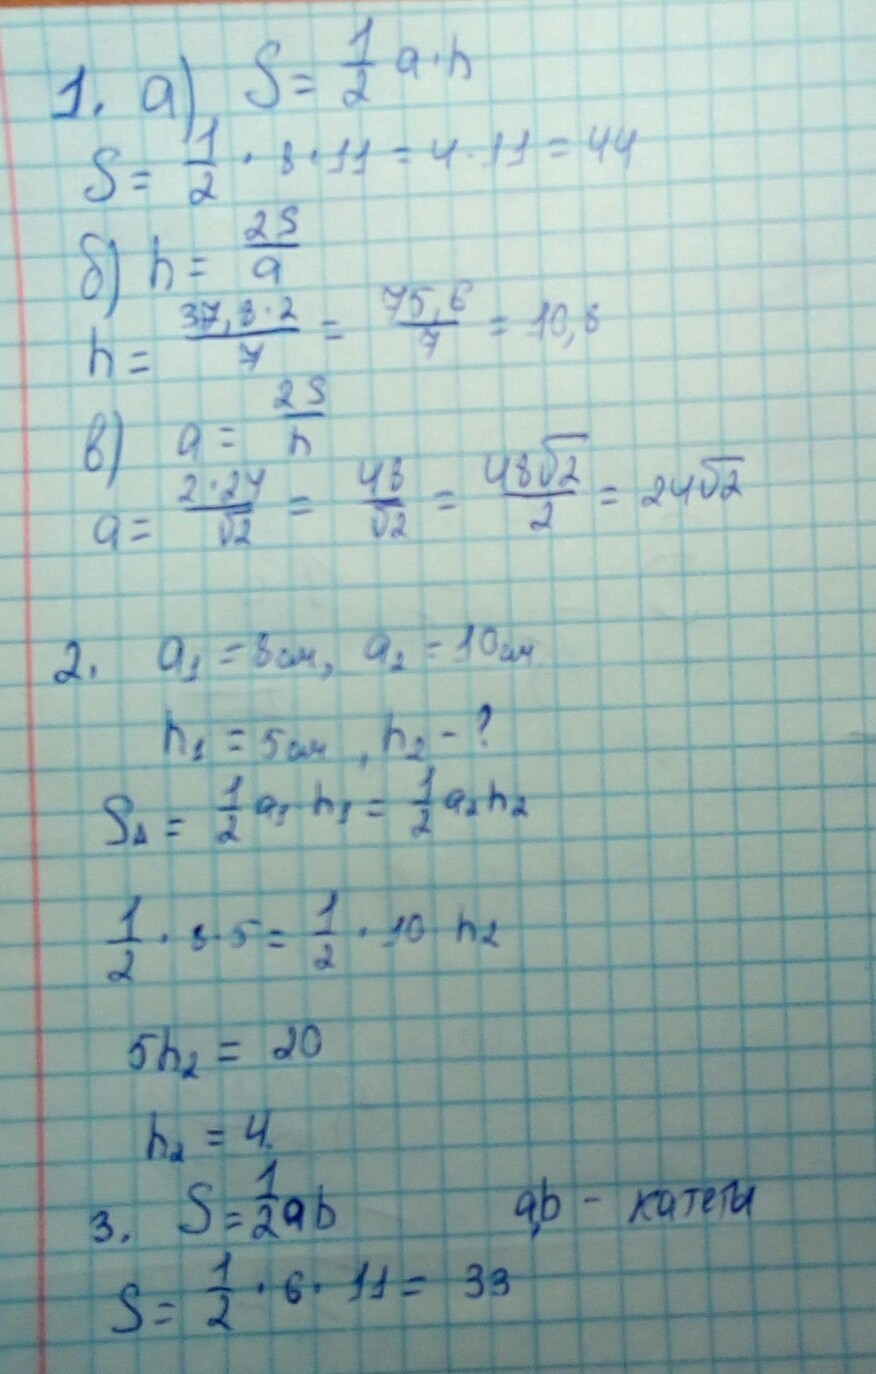 1. а) S = 1/2 a·h
S = 1/2 · 8 · 11 = 4 · 11 = 44
б) h = 2S/a
h = 37,8·2/7 = 75,6/7 = 10,8
в) a = 2S/h
a = 2·24/√2 = 48/√2 = 48√2/2 = 24√2
2. a₁ = 8см, a₂ = 10см
h₁ = 5см, h₂ - ?
S▵ = 1/2 a₁ h₁ = 1/2 a₂h₂
1/2 · 8·5 = 1/2 · 10 h₂
5h₂ = 20
h₂ = 4.
3. S = 1/2 ab a,b - катеты
S = 1/2 · 6 · 11 = 33